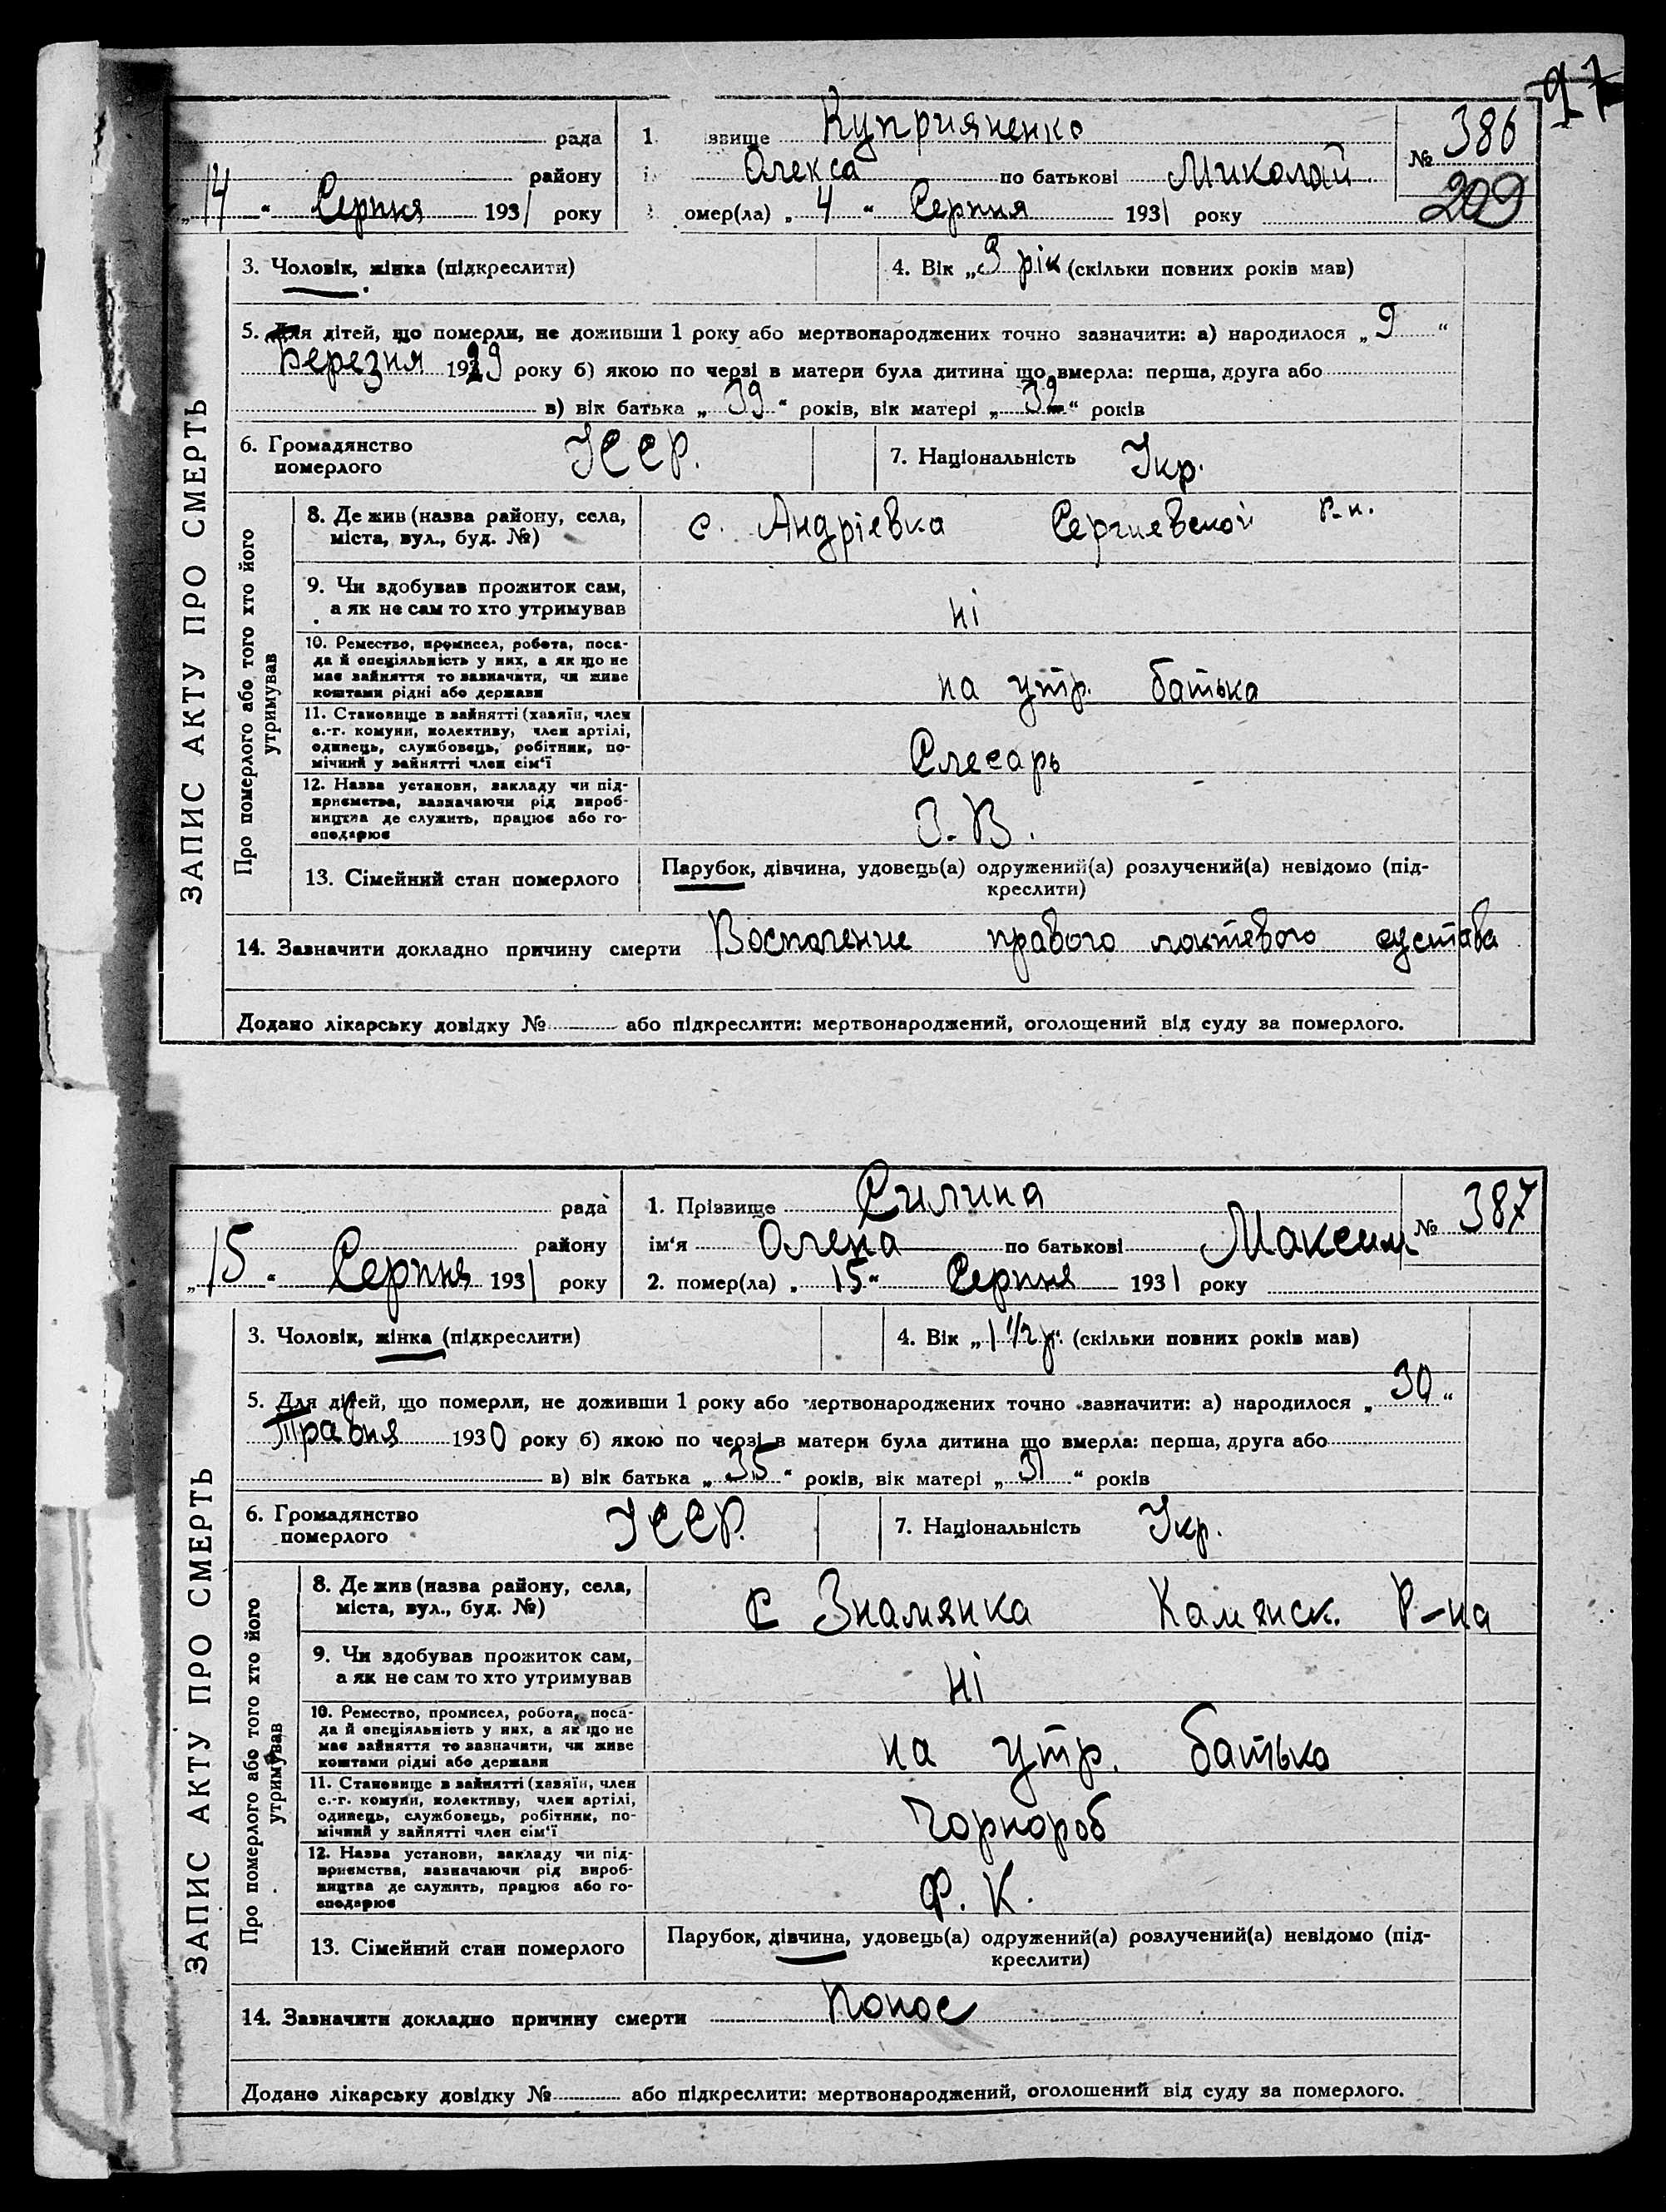 97
рада
1. ...звище Куприяненко
№ 386
району
Олекса по батькові Миколай
209
„14“ Серпня 1931 року
омер(ла) „4“ Серпня 1931 року
3. Чоловік, жінка (підкреслити)
4. Вік „3 рік (скільки повних років мав)
5. Для дітей, що померли, не доживши 1 року або мертвонароджених точно зазначити: а) народилося „9“
Березня 1929 року б) якою по черзі в матери була дитина що вмерла: перша, друга або
в) вік батька „39“ років, вік матері „32“ років
6. Громадянство
померлого
УССР.
7. Національність Укр.
ЗАПИС АКТУ ПРО СМЕРТЬ
Про померлого або того хто його
утримував
8. Де жив (назва району, села,
міста, вул., буд. №)
с. Андрієвка Сергиевской р-н.
9. Чи здобував прожиток сам,
а як не сам то хто утримував
ні
10. Ремество, промисел, робота, поса-
да й спеціяльність у них, а як що не
має зайняття то зазначити, чи живе
коштами рідні або держави
на утр. батька
11. Становище в зайнятті (хазяїн, член
с.-г. комуни, колективу, член артілі,
одинець, службовець, робітник, по-
мічний у зайнятті член сім'ї
Слесарь
12. Назва установи, закладу чи під-
приємства, зазначаючи рід вироб-
ництва де служить, працює або го-
сподарює
З. В.
13. Сімейний стан померлого
Парубок, дівчина, удовець(а) одружений(а) розлучений(а) невідомо (під-
креслити)
14. Зазначити докладно причину смерти Воспаление правого локтевого сустава
Додано лікарську довідку № або підкреслити: мертвонароджений, оголощений від суду за померлого.
рада
1. Прізвище Силина
№ 387
району
ім'я Олена по батькові Максим
„15“ Серпня 1931 року
2. помер(ла) „15“ Серпня 1931 року
3. Чоловік, жінка (підкреслити)
4. Вік „1 1/2 р.“ (скільки повних років мав)
5. Для дітей, що померли, не доживши 1 року або мертвонароджених точно зазначити: а) народилося „30“
Травня 1930 року б) якою по черзі в матери була дитина що вмерла: перша, друга або
в) вік батька „35“ років, вік матері „31“ років
6. Громадянство
померлого
УССР.
7. Національність Укр.
ЗАПИС АКТУ ПРО СМЕРТЬ
Про померлого або того хто його
утримував
8. Де жив (назва району, села,
міста, вул., буд. №)
с Знамянка Камянск. Р-на
9. Чи здобував прожиток сам,
а як не сам то хто утримував
ні
10. Ремество, промисел, робота, поса-
да й спеціяльність у них, а як що не
має зайняття то зазначити, чи живе
коштами рідні або держави
на утр. батька
11. Становище в зайнятті (хазяїн, член
с.-г. комуни, колективу, член артілі,
одинець, службовець, робітник, по-
мічний у зайнятті член сім'ї
Чорнороб
12. Назва установи, закладу чи під-
приємства, зазначаючи рід вироб-
ництва де служить, працює або го-
сподарює
Ф. К.
13. Сімейний стан померлого
Парубок, дівчина, удовець(а) одружений(а) розлучений(а) невідомо (під-
креслити)
14. Зазначити докладно причину смерти Понос
Додано лікарську довідку № або підкреслити: мертвонароджений, оголошений від суду за померлого.